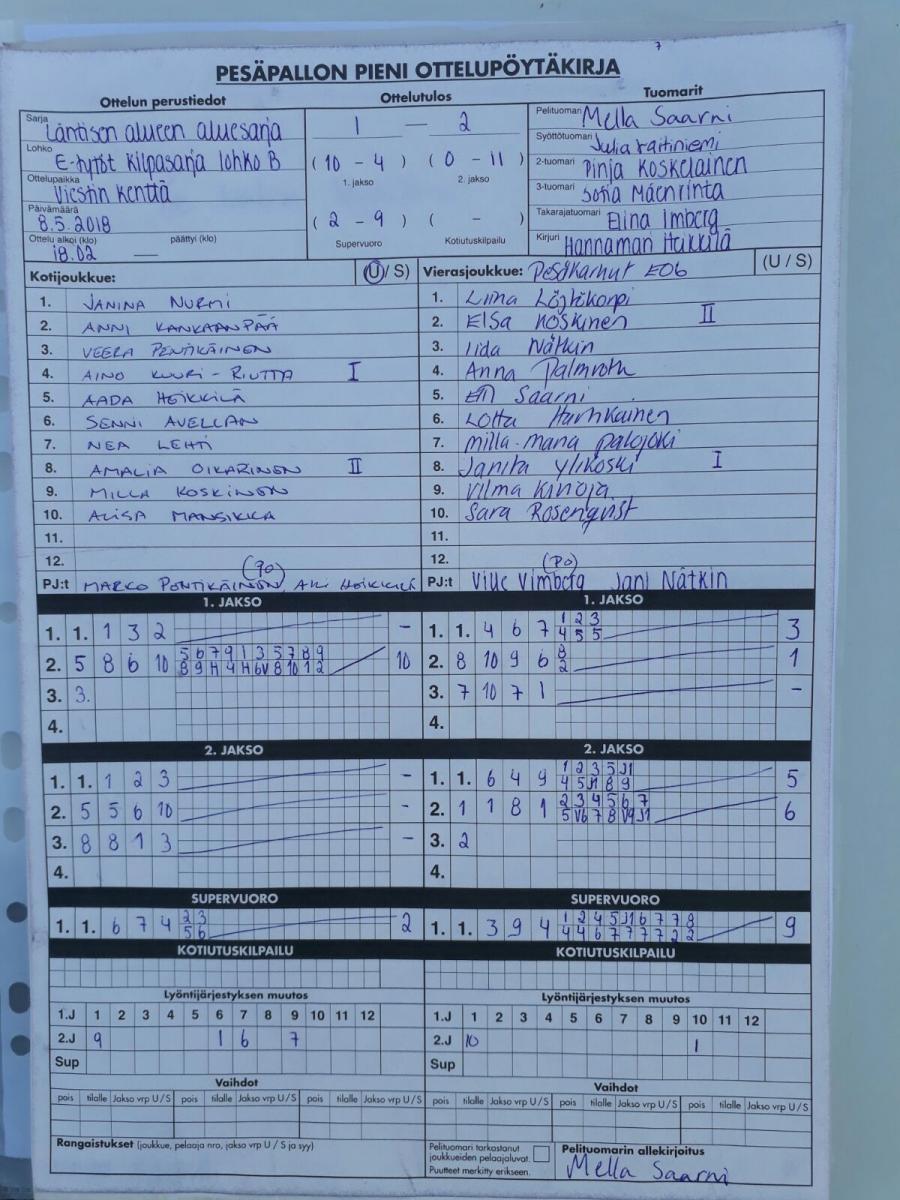 PESÄPALLON PIENI OTTELUPÖYTÄKIRJA
Ottelun perustiedot
Ottelutulos
Tuomarit
Sarja Läntisen alueen aluesarja
1 — 2
Pelituomari Mella Saarni
Lohko E-tytöt kilpasarja lohko B
Syöttötuomari Julia Raitiniemi
(10 - 4) (0 - 11)
1. jakso 2. jakso
2-tuomari Pinja Koskelainen
Ottelupaikka Viestin kenttä
3-tuomari Sofia Mäenrinta
Päivämäärä 8.5.2018
(2 - 9) ( - )
Takarajatuomari Elina Imberg
Ottelu alkoi (klo) 18.02 päättyi (klo) —
Supervuoro Kotiutuskilpailu
Kirjuri Hannamari Heikkilä
Kotijoukkue: (U / S)
1. JANINA NURMI
2. ANNI KANKAANPÄÄ
3. VEERA PENTIKÄINEN
4. AINO KUURI-RIUTTA I
5. AADA HEIKKILÄ
6. SENNI AVELLAN
7. NEA LEHTI
8. AMALIA OIKARINEN II
9. MILLA KOSKINEN
10. ALISA MANSIKKA
11.
12.
PJ:t MARKO PENTIKÄINEN (PO), AKI HEIKKILÄ
Vierasjoukkue: Pesäkarhut E06 (U / S)
1. Liina Löytökorpi
2. Elsa Koskinen II
3. Iida Nätkin
4. Anna Palmroth
5. Saarni
6. Lotta Harhkainen
7. Milla-Maria Palojoki
8. Janita Ylikoski I
9. Vilma Kinoja
10. Sara Rosenqvist
11.
12.
PJ:t Ville Vimberg (PO) Jani Nätkin
1. JAKSO
1. 1. 1 3 2 -
2. 5 8 6 10 5 6 7 9 1 3 5 7 8 9 10
8 9 H 4 H 6V 8 10 1 2
3. 3.
4.
1. JAKSO
1. 1. 4 6 7 1 2 3 3
4 5 5
2. 8 10 9 6 8 1
2
3. 7 10 7 1 -
4.
2. JAKSO
1. 1. 1 2 3 -
2. 5 5 6 10 -
3. 8 8 1 3 -
4.
2. JAKSO
1. 1. 6 4 9 1 2 3 5 J1 5
4 5 J1 8 9
2. 1 1 8 1 2 3 4 5 6 7 6
5 V6 7 8 V9 J1
3. 2
4.
SUPERVUORO
1. 1. 6 7 4 2 3 2
5 6
SUPERVUORO
1. 1. 3 9 4 1 2 4 5 J1 6 7 7 8 9
4 4 6 7 7 7 7 2 2
KOTIUTUSKILPAILU
KOTIUTUSKILPAILU
Lyöntijärjestyksen muutos
1.J 1 2 3 4 5 6 7 8 9 10 11 12
2.J 9 1 6 7
Sup
Lyöntijärjestyksen muutos
1.J 1 2 3 4 5 6 7 8 9 10 11 12
2.J 10 1
Sup
Vaihdot
pois tilalle Jakso vrp U / S pois tilalle Jakso vrp U / S pois tilalle Jakso vrp U / S
Vaihdot
pois tilalle Jakso vrp U / S pois tilalle Jakso vrp U / S pois tilalle Jakso vrp U / S
Rangaistukset (joukkue, pelaaja nro, jakso vrp U / S ja syy)
Pelituomari tarkastanut
joukkueiden pelaajaluvat.
Puutteet merkitty erikseen.
Pelituomarin allekirjoitus
Mella Saarni